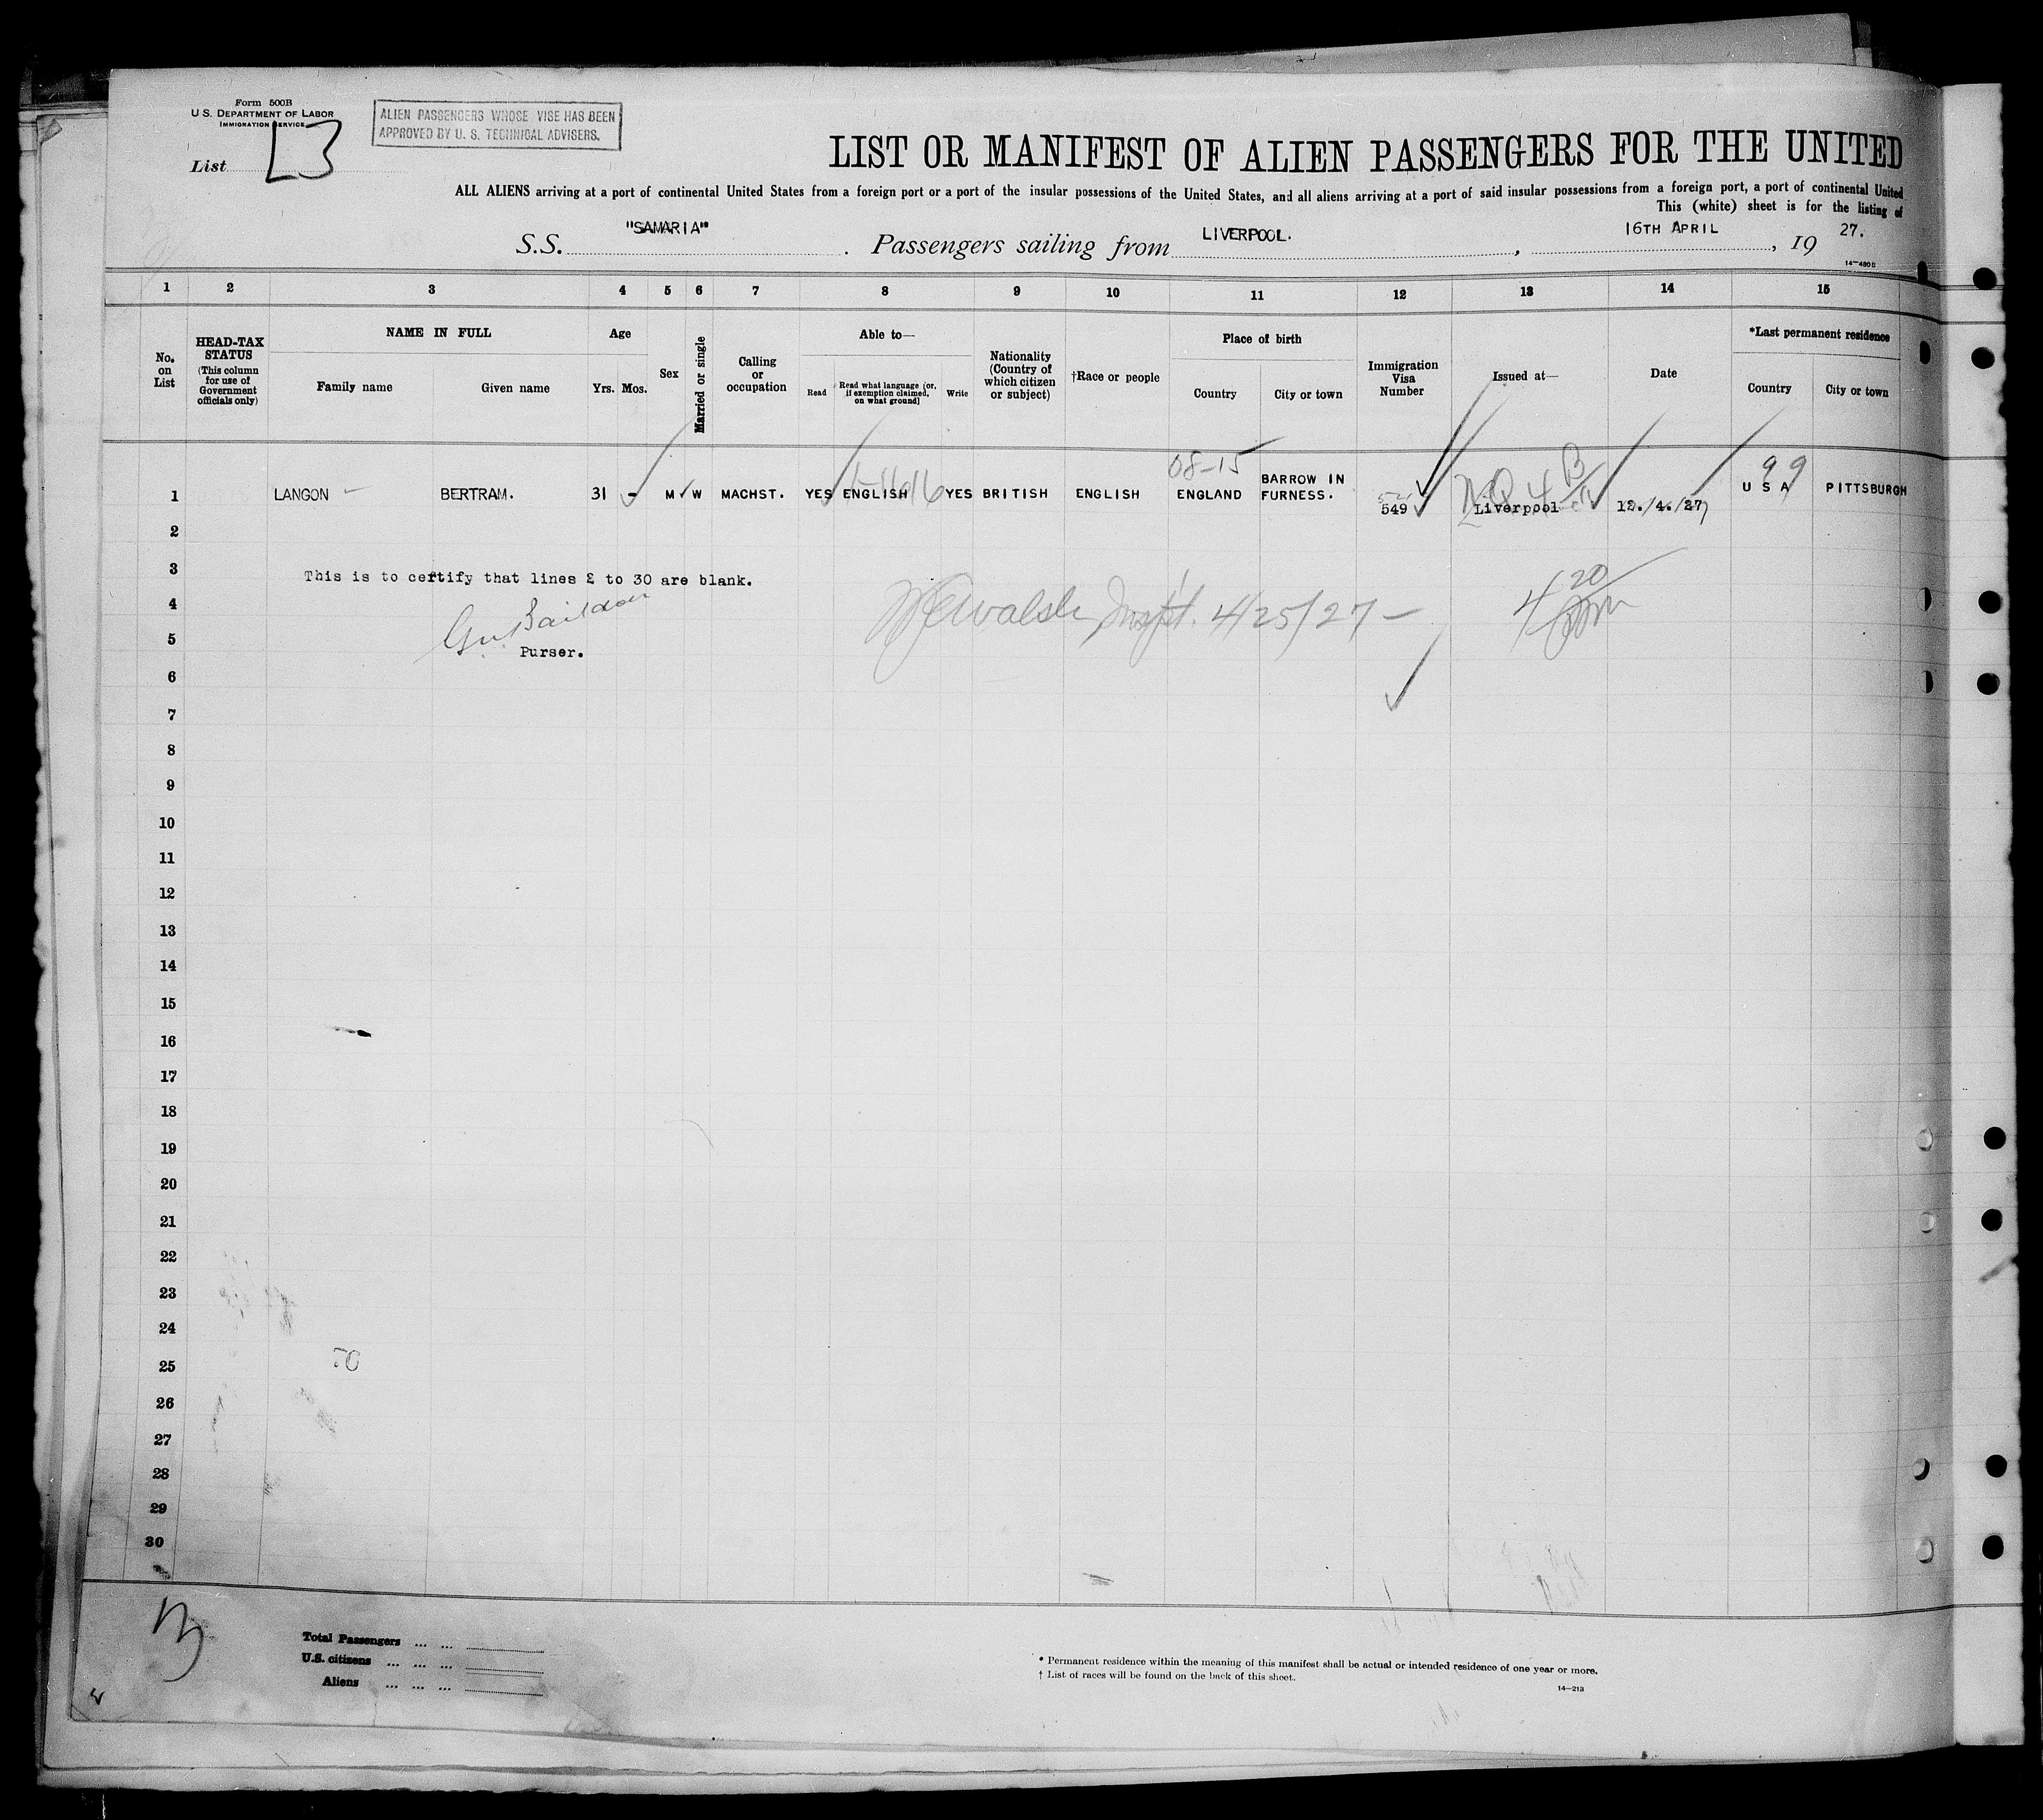 Form 500B
U.S. DEPARTMENT OF LABOR
IMMIGRATION SERVICE
List L3
ALIEN PASSENGERS WHOSE VISE HAS BEEN
APPROVED BY U. S. TECHNICAL ADVISERS.
LIST OR MANIFEST OF ALIEN PASSENGERS FOR THE UNITED
ALL ALIENS arriving at a port of continental United States from a foreign port or a port of the insular possessions of the United States, and all aliens arriving at a port of said insular possessions from a foreign port, a port of continental United
This (white) sheet is for the listing of
S.S. "SAMARIA". Passengers sailing from LIVERPOOL., 16TH APRIL, 19 27.
14-480B
1 2 3 4 5 6 7 8 9 10 11 12 13 14 15
No. on List
HEAD-TAX STATUS
(This column for use of Government officials only)
NAME IN FULL
Family name Given name
Age
Yrs. Mos.
Sex
Married or single
Calling or occupation
Able to—
Read
Read what language (or, if exemption claimed, on what ground)
Write
Nationality (Country of which citizen or subject)
†Race or people
Place of birth
Country City or town
Immigration Visa Number
Issued at—
Date
*Last permanent residence
Country City or town
08-15 99
1 LANGON - BERTRAM. 31 - M W MACHST. YES ENGLISH YES BRITISH ENGLISH ENGLAND BARROW IN FURNESS. 549 Liverpool 12. 4. 27 U S A PITTSBURGH
2
3 This is to certify that lines 2 to 30 are blank.
4 Walsh Inspt. 4/25/27 - 4/20
5 Purser.
6
7
8
9
10
11
12
13
14
15
16
17
18
19
20
21
22
23
24
25
26
27
28
29
30
Total Passengers ... ...
U.S. citizens ... ... ...
Aliens ... ... ...
* Permanent residence within the meaning of this manifest shall be actual or intended residence of one year or more.
† List of races will be found on the back of this sheet.
14-213